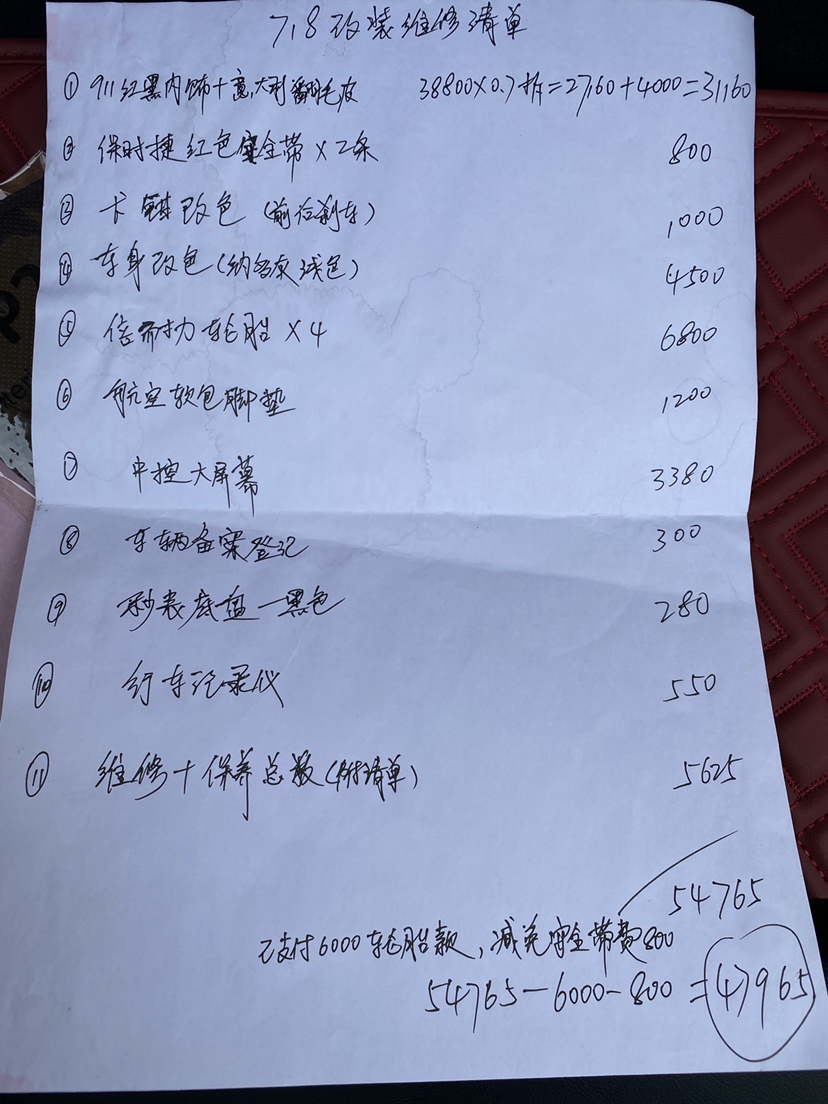 718改装维修清单
① 911红黑内饰+意大利翻毛皮 38800×0.7折=27160+4000=31160
② 保时捷红色安全带×2条 800
③ 卡钳改色(前后刹车) 1000
④ 车身改色(纳多灰浅色) 4500
⑤ 倍耐力轮胎×4 6800
⑥ 航空软包脚垫 1200
⑦ 中控大屏幕 3380
⑧ 车辆备案登记 300
⑨ 秒表底盘一黑色 280
⑩ 行车记录仪 550
⑪ 维修+保养总数(附清单) 5625
54765
已支付6000轮胎款,减免安全带费800
54765-6000-800=47965